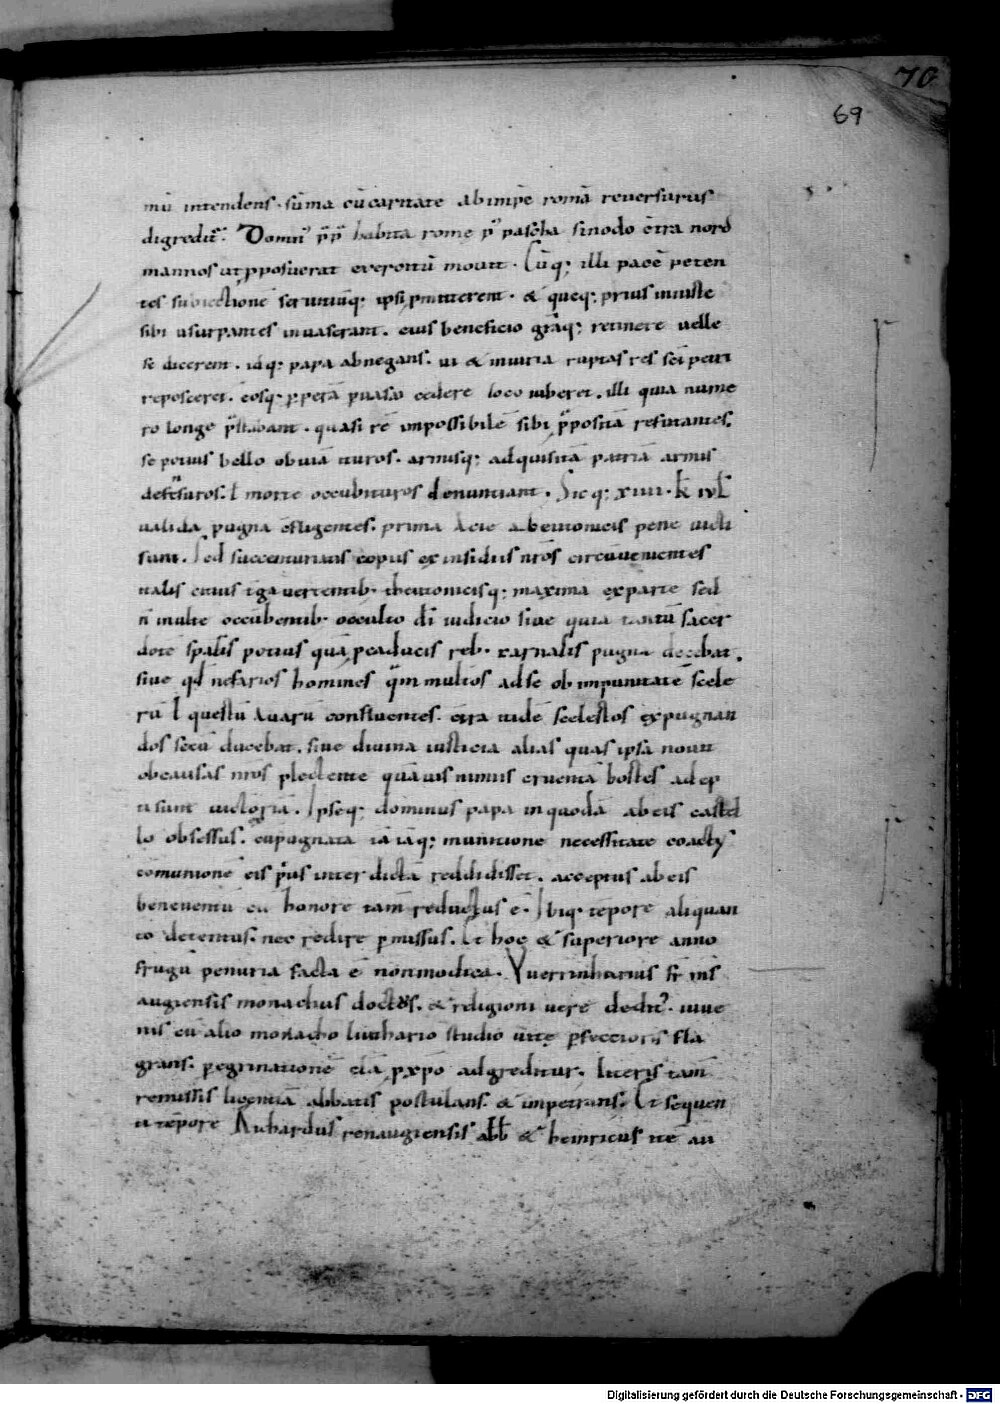 70
69
mū intendens. sūma cū caritate ab impr̄e romā reversurus
digredit̃. Domn᷒ p̄p̄ habita rome p᷒ pascha sinodo c̄tra nord
mannos ut pposuerat exercitū mouit. Cūq; illi pacē peten
tes subiectionē seruitiūq; ipsi pmitterent. & queq; prius iniuste
sibi usurpantes inuaserant. eius beneficio grāq; retinere uelle
se dicerent. idq; papa abnegans. ui & iniuria raptas res sc̄i petri
reposceret. eosq; pperā puasa cedere loco iuberet. illi quia nume
ro longe p̄stabant. quasi rē impossibilē sibi p̄positā refutantes.
se potius bello obuiā ituros. armisq; adquisitā patriā armis
defēsuros. ł morte occubituros denuntiant. Sicq; xiiii. k̄ iul̄
ualida pugna c̄fligentes. prima acie a beitonicis pene uicti
sunt. Sed succenturiatis copiis ex insidiis nr̄os circūuenientes
italis citius ī fuga uertentib. theutonicisq; maxima ex parte sed
n̄ multe occūbentib. occulto dī iudicio siue quia tantū sacer
dotē sp̄alis potius quā p caducis reb. carnalis pugna decebat.
siue qd̄ nefarios homines q̄m multos ad se ob impunitatē scele
rū ł questū auarū confluentes. c̄tra itidē scelestos expugnan
dos secū ducebat. siue diuina iusticia alias quas ipsa nouit
ob causas nr̄os plectente quāuis nimis cruentā hostes adep
ti sunt uictoriā. Ipseq; dominus papa in quodā ab eis castel
lo obsessus. expugnata iā iāq; munitione necessitate coact᷒
cōmunionē eis p̄us interdictā reddidisset. acceptus ab eis
beneuentū cū honore tam̄ reductus ē. Ibiq; tēpore aliquan
to detentus. nec redire pmissus. Et hoc & superiore anno
frugū penuria facta ē non modica. Vuerinharius fr̄ m̄s
augiensis monachus doct᷒. & religioni vere dedit᷒. iuue
nis cū alio monacho liuthario studio uite pfectioris fla
grans. pegrinationē clā p xp̄o adgreditur. literis tam̄
remissis licentiā abbatis postulans. & impetrans. Et sequen
ti tēpore Richardus renaugiensis abb̄ & heinricus ite au
Digitalisierung gefördert durch die Deutsche Forschungsgemeinschaft - DFG